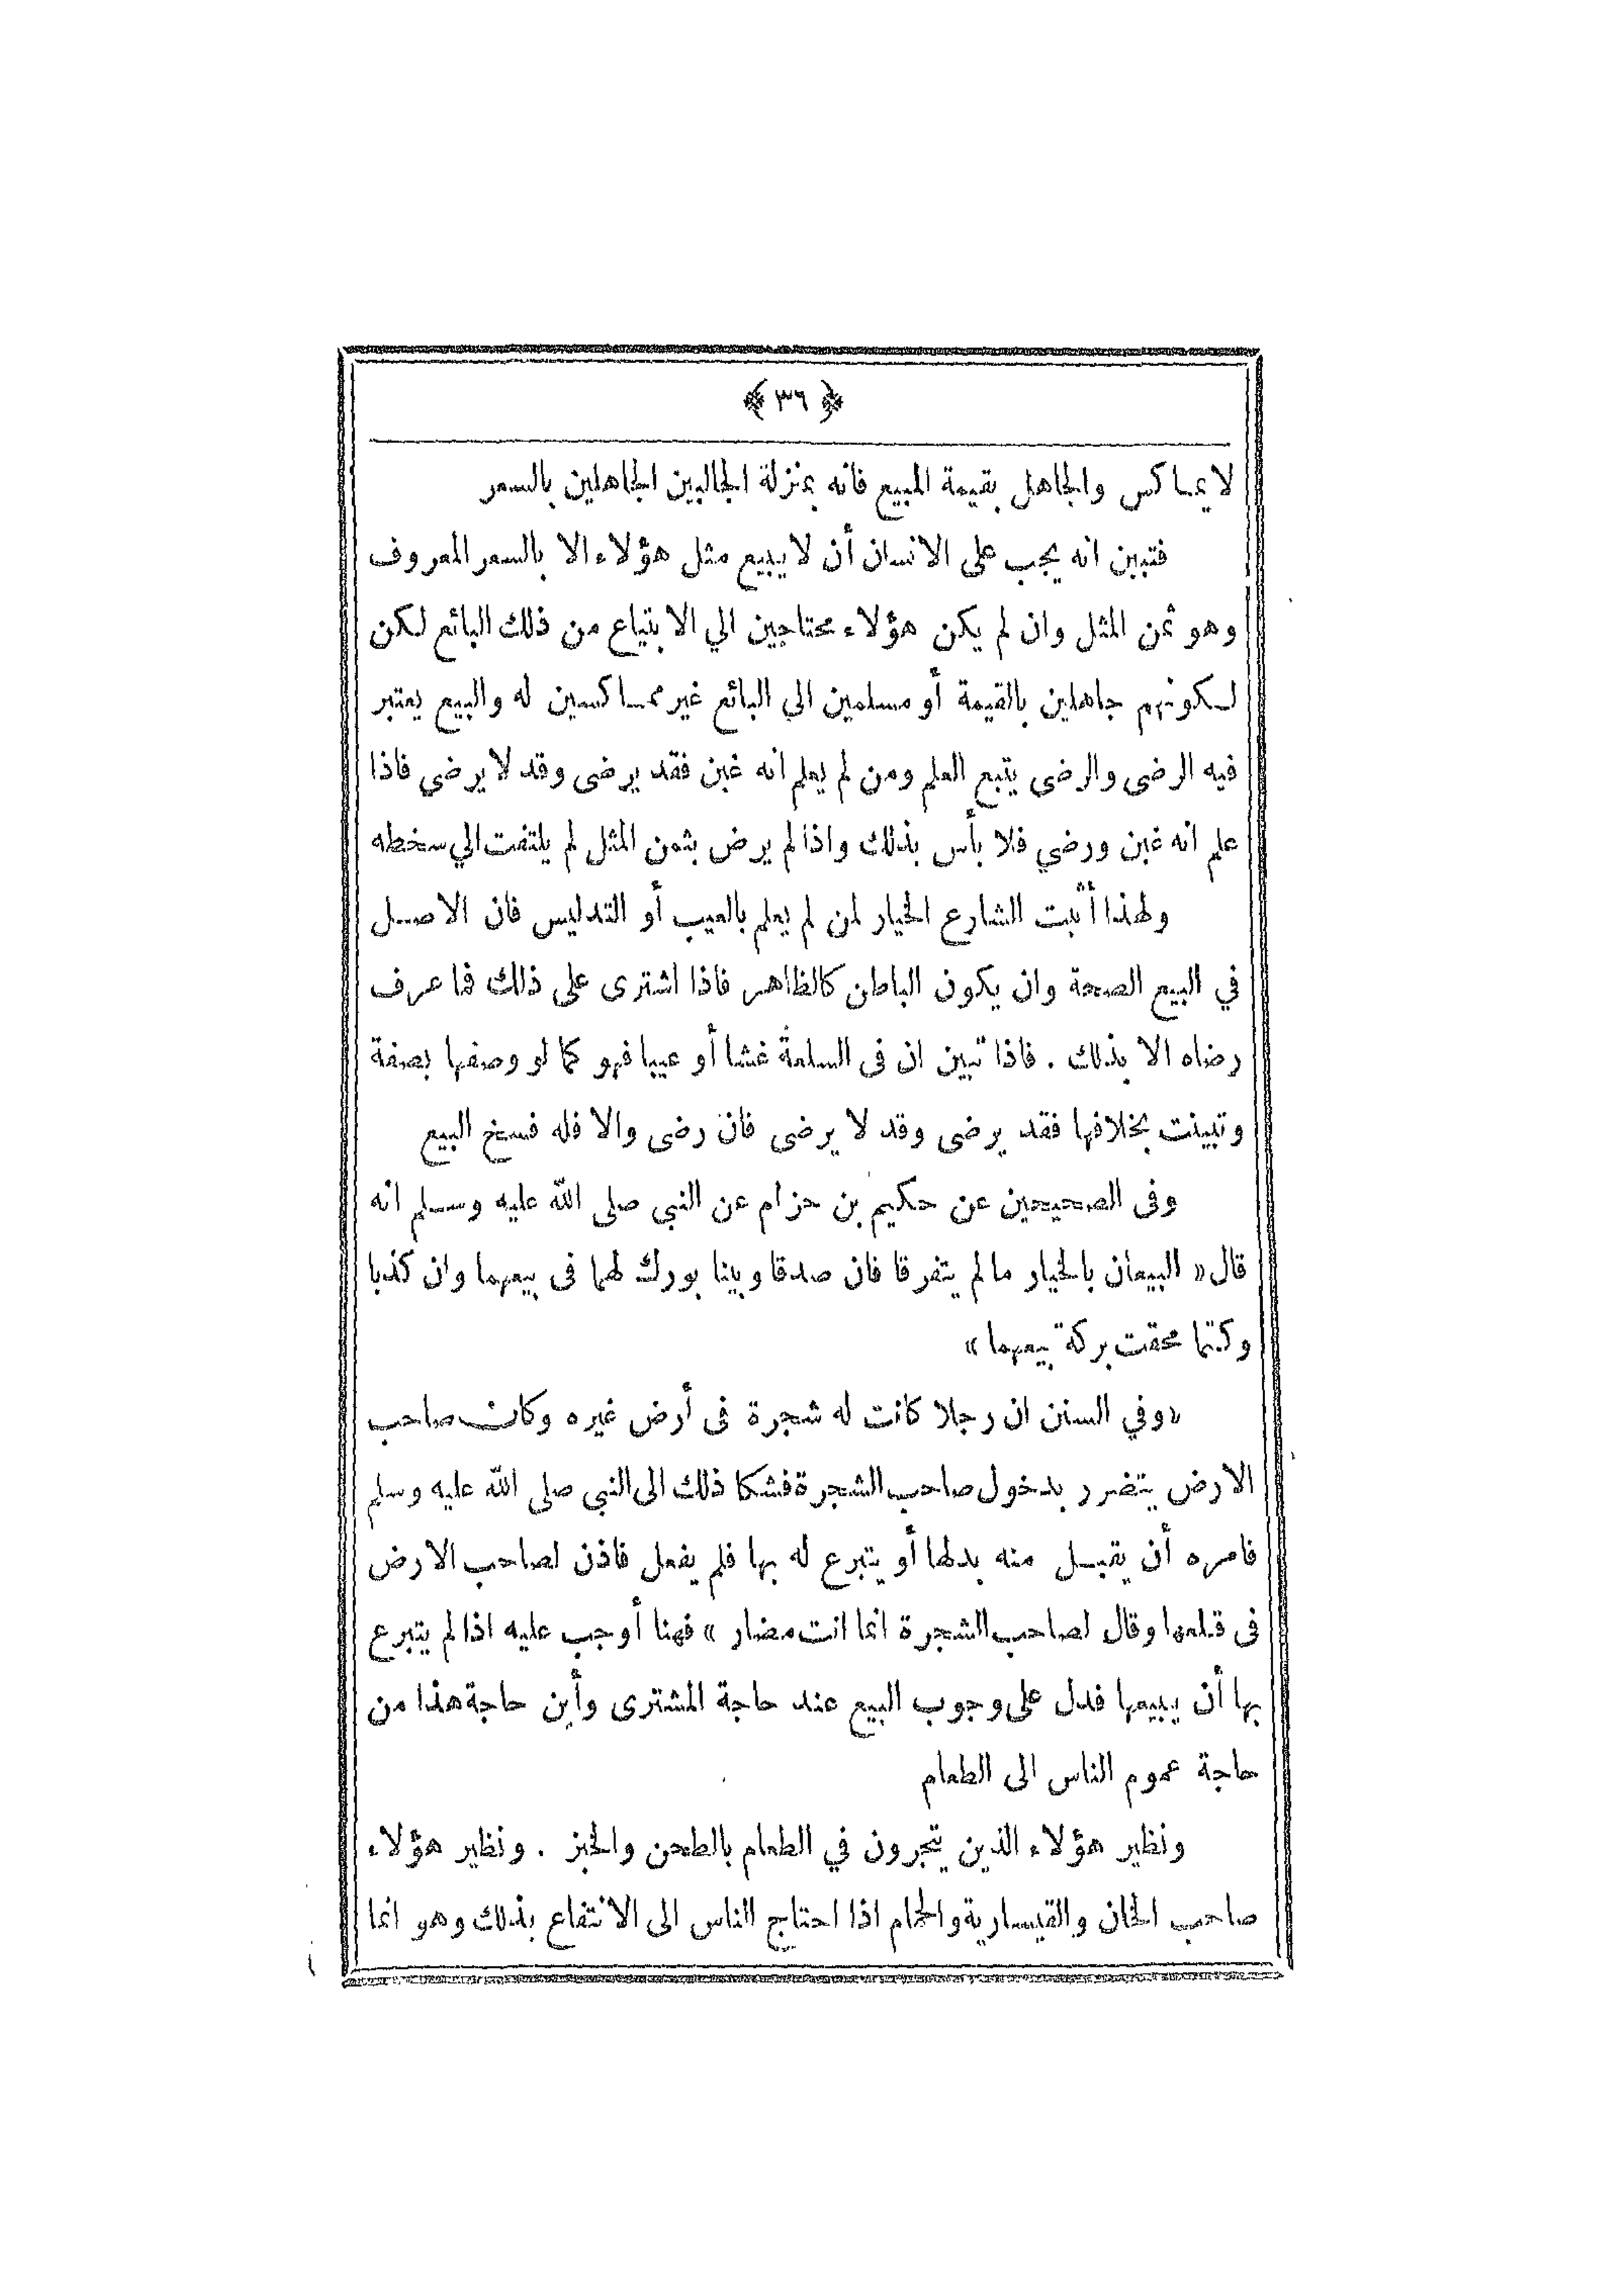 ﴿ ٣٦ ﴾
لا يماكس والجاهل بقيمة المبيع فانه بمنزلة الجالبين الجاهلين بالسعر
فتبين انه يجب على الانسان أن لا يبيع مثل هؤلاء الا بالسعر المعروف
وهو ثمن المثل وان لم يكن هؤلاء محتاجين الي الابتياع من ذلك البائع لكن
لكونهم جاهلين بالقيمة أو مسلمين الي البائع غير مماكسين له والبيع يعتبر
فيه الرضى والرضى يتبع العلم ومن لم يعلم انه غبن فقد يرضى وقد لا يرضي فاذا
علم انه غبن ورضي فلا بأس بذلك واذا لم يرض بثمن المثل لم يلتفت الي سخطه
ولهذا أثبت الشارع الخيار لمن لم يعلم بالعيب أو التدليس فان الاصل
في البيع الصحة وان يكون الباطن كالظاهر فاذا اشترى على ذلك فما عرف
رضاه الا بذلك . فاذا تبين ان فى السلعة غشا أو عيبا فهو كما لو وصفها بصفة
وتبينت بخلافها فقد يرضى وقد لا يرضى فان رضى والا فله فسخ البيع
وفى الصحيحين عن حكيم بن حزام عن النبي صلى الله عليه وسلم انه
قال « البيعان بالخيار ما لم يتفرقا فان صدقا وبينا بورك لهما فى بيعهما وان كذبا
وكتما محقت بركة بيعهما »
«وفي السنن ان رجلا كانت له شجرة فى أرض غيره وكان صاحب
الارض يتضرر بدخول صاحب الشجرة فشكا ذلك الى النبي صلى الله عليه وسلم
فامره أن يقبل منه بدلها أو يتبرع له بها فلم يفعل فاذن لصاحب الارض
فى قلعها وقال لصاحب الشجرة انما انت مضار » فهنا أوجب عليه اذا لم يتبرع
بها أن يبيعها فدل على وجوب البيع عند حاجة المشترى وأين حاجة هذا من
حاجة عموم الناس الى الطعام
ونظير هؤلاء الذين يتجرون في الطعام بالطحن والخبز . ونظير هؤلاء
صاحب الخان والقيسارية والحمام اذا احتاج الناس الى الانتفاع بذلك وهو انما